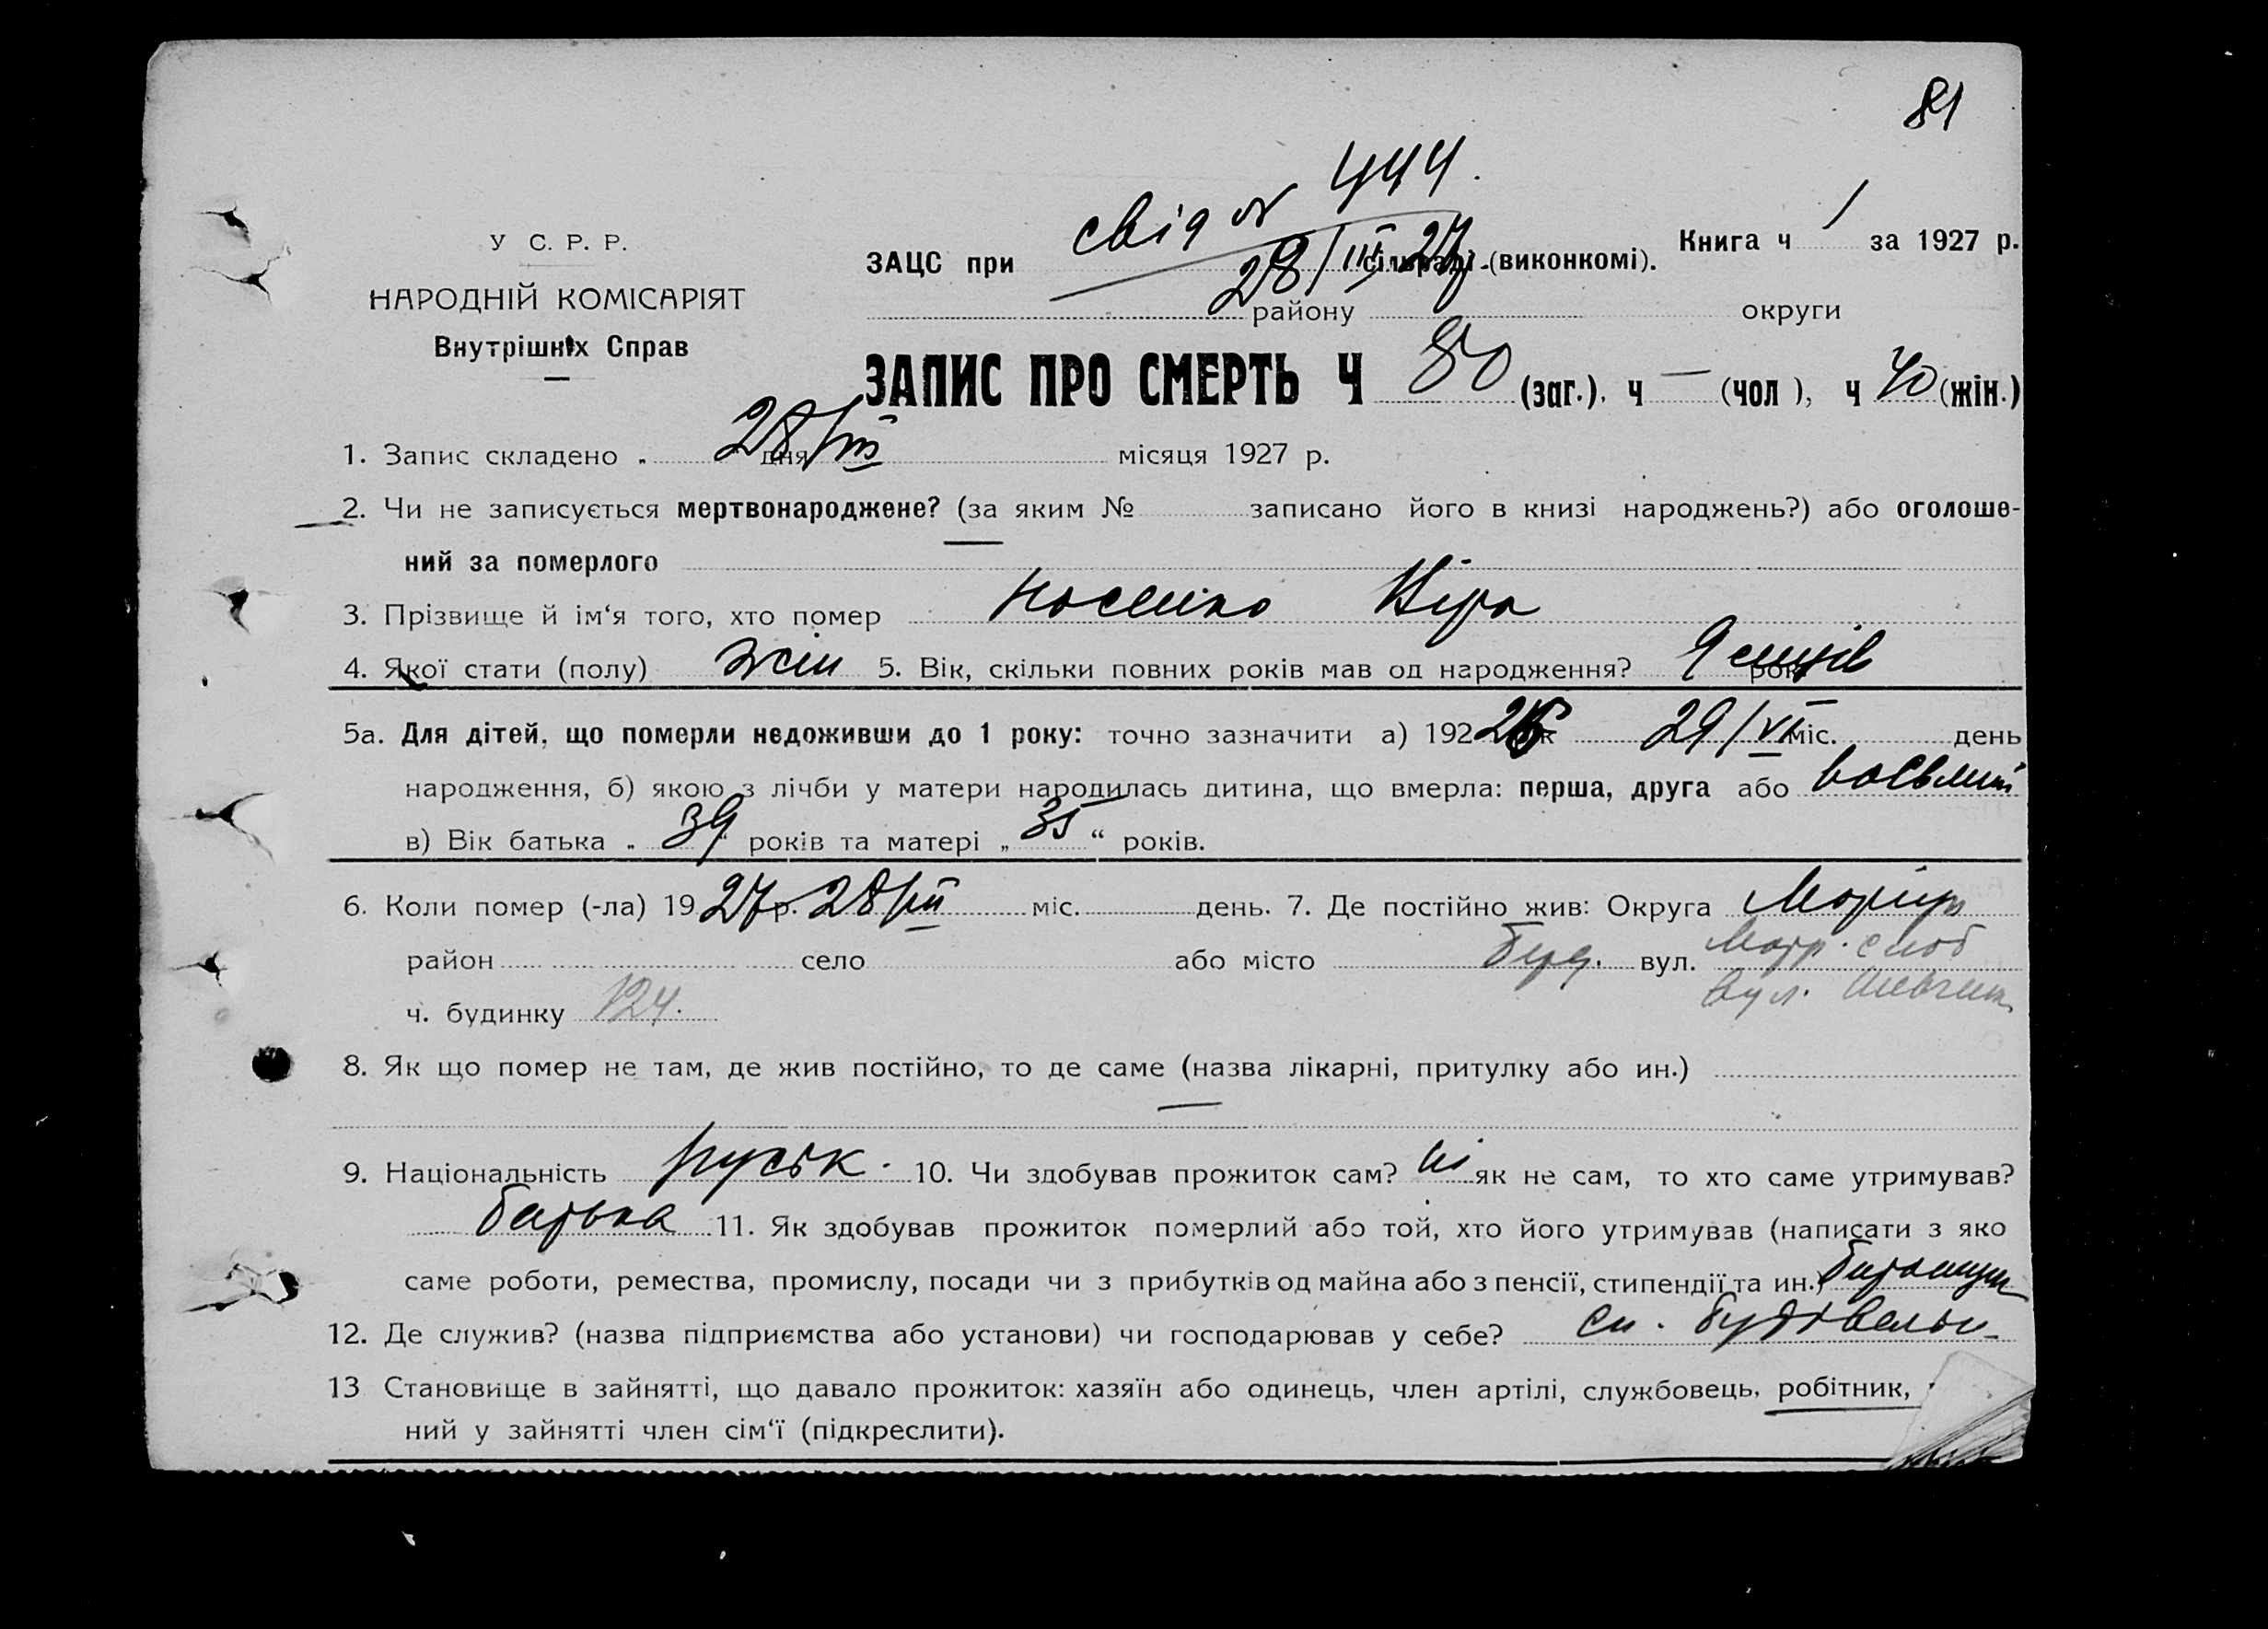 81
свід № 444.
28/III 27
У С. Р. Р.
НАРОДНІЙ КОМІСАРІЯТ
Внутрішніх Справ
ЗАЦС при сільраді-(виконкомі). Книга ч 1 за 1927 р.
району округи
ЗАПИС ПРО СМЕРТЬ Ч 80 (заг.). ч — (чол ), ч 40 (жін.)
1. Запис складено „ 28/III дня місяця 1927 р.
2. Чи не записується мертвонароджене? (за яким № записано його в книзі народжень?) або оголоше-
ний за померлого —
3. Прізвище й ім‘я того, хто помер Носенко Віра
4. Якої стати (полу) жін 5. Вік, скільки повних років мав од народження? 9 місяців рок
5а. Для дітей, що померли недоживши до 1 року: точно зазначити а) 192 26 рік 29/VI міс. день
народження, б) якою з лічби у матери народилась дитина, що вмерла: перша, друга або восьмий
в) Вік батька „ 39 “ років та матері „ 35 “ років.
6. Коли помер (-ла) 19 27 р. 28/III міс. день. 7. Де постійно жив: Округа Маріуп
район село або місто Берд. вул. Матр. слоб
вул. Шевченк
ч. будинку 124.
8. Як що помер не там, де жив постійно, то де саме (назва лікарні, притулку або ин.)
—
9. Національність руськ. 10. Чи здобував прожиток сам? ні як не сам, то хто саме утримував?
батька 11. Як здобував прожиток померлий або той, хто його утримував (написати з яко
саме роботи, ремества, промислу, посади чи з прибутків од майна або з пенсії, стипендії та ин.)
12. Де служив? (назва підприємства або установи) чи господарював у себе? сп. будівельн
13 Становище в зайнятті, що давало прожиток: хазяїн або одинець, член артілі, службовець, робітник,
ний у зайнятті член сім‘ї (підкреслити).